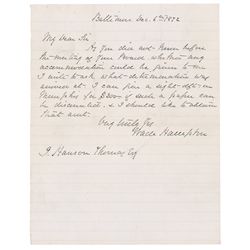 Baltimore Dec. 6th 1872
My Dear Sir
As you did not know before
the meeting of your Board, whether any
accommodation could be given to me
I write to ask what determination was
at. I can give a sight dft. on
Memphis for $2000 if such a paper can
be discounted, & I should like to obtain
that amt.
Very truly Yrs
Wade Hampton
J. Hanson Thomas Esq